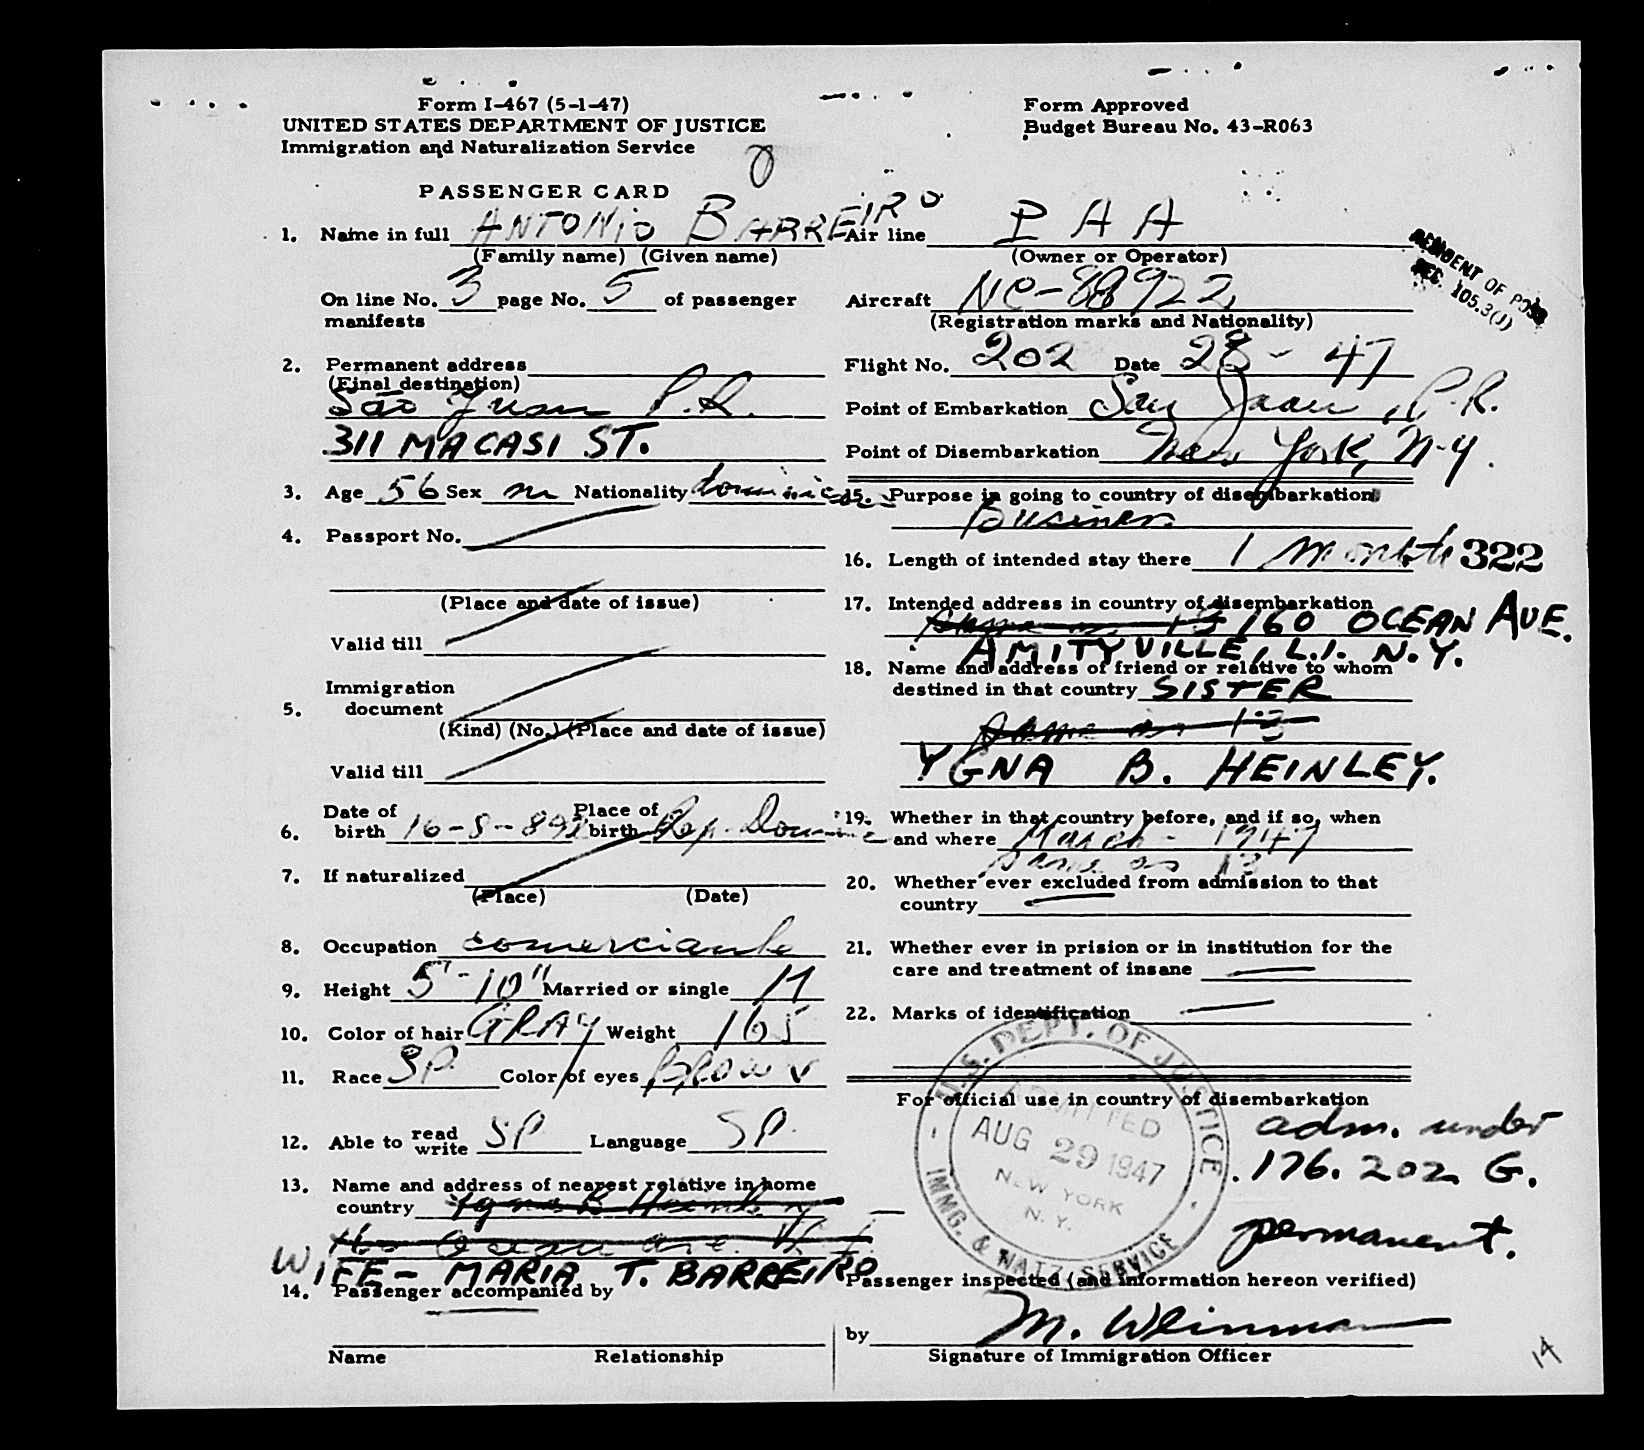 Form I-467 (5-1-47)
UNITED STATES DEPARTMENT OF JUSTICE
Immigration and Naturalization Service
Form Approved
Budget Bureau No. 43-R063
PASSENGER CARD
1. Name in full ANTONIO BARREIRO
(Family name) (Given name)
On line No. 3 page No. 5 of passenger
manifests
2. Permanent address
(Final destination)
São Juan P.R.
311 MACASI ST.
3. Age 56 Sex m Nationality dominican
4. Passport No.
(Place and date of issue)
Valid till
Immigration
5. document
(Kind) (No.) (Place and date of issue)
Valid till
Date of Place of
6. birth 16-8-892 birth Rep. Dominic
7. If naturalized
(Place) (Date)
8. Occupation comerciante
9. Height 5'-10" Married or single M
10. Color of hair GRAY Weight 165
11. Race SP. Color of eyes BROWN
12. Able to read write SP Language SP.
13. Name and address of nearest relative in home
country Ygna B Heinley
160 Ocean ave.
WIFE - MARIA T. BARREIRO
14. Passenger accompanied by
Name Relationship
Air line P A A
(Owner or Operator)
Aircraft NC-88922
(Registration marks and Nationality)
RESIDENT OF POSS
SEC. 105.3(J)
Flight No. 202 Date 28 - 47
Point of Embarkation San Juan, P.R.
Point of Disembarkation New York, N-Y.
15. Purpose in going to country of disembarkation
Business
16. Length of intended stay there 1 month 322
17. Intended address in country of disembarkation
Same as 13 160 OCEAN AVE.
AMITYVILLE, L.I. N.Y.
18. Name and address of friend or relative to whom
destined in that country SISTER
Same as 13
YGNA B. HEINLEY.
19. Whether in that country before, and if so, when
and where March - 1947
same as 13
20. Whether ever excluded from admission to that
country
21. Whether ever in prision or in institution for the
care and treatment of insane
22. Marks of identification
For official use in country of disembarkation
U.S. DEPT. OF JUSTICE
ADMITTED
AUG 29 1947
NEW YORK
N.Y.
IMMG. & NATZ. SERVICE
adm. under
176.202 G.
permanent.
Passenger inspected (and information hereon verified)
by M. Weinman
Signature of Immigration Officer
14